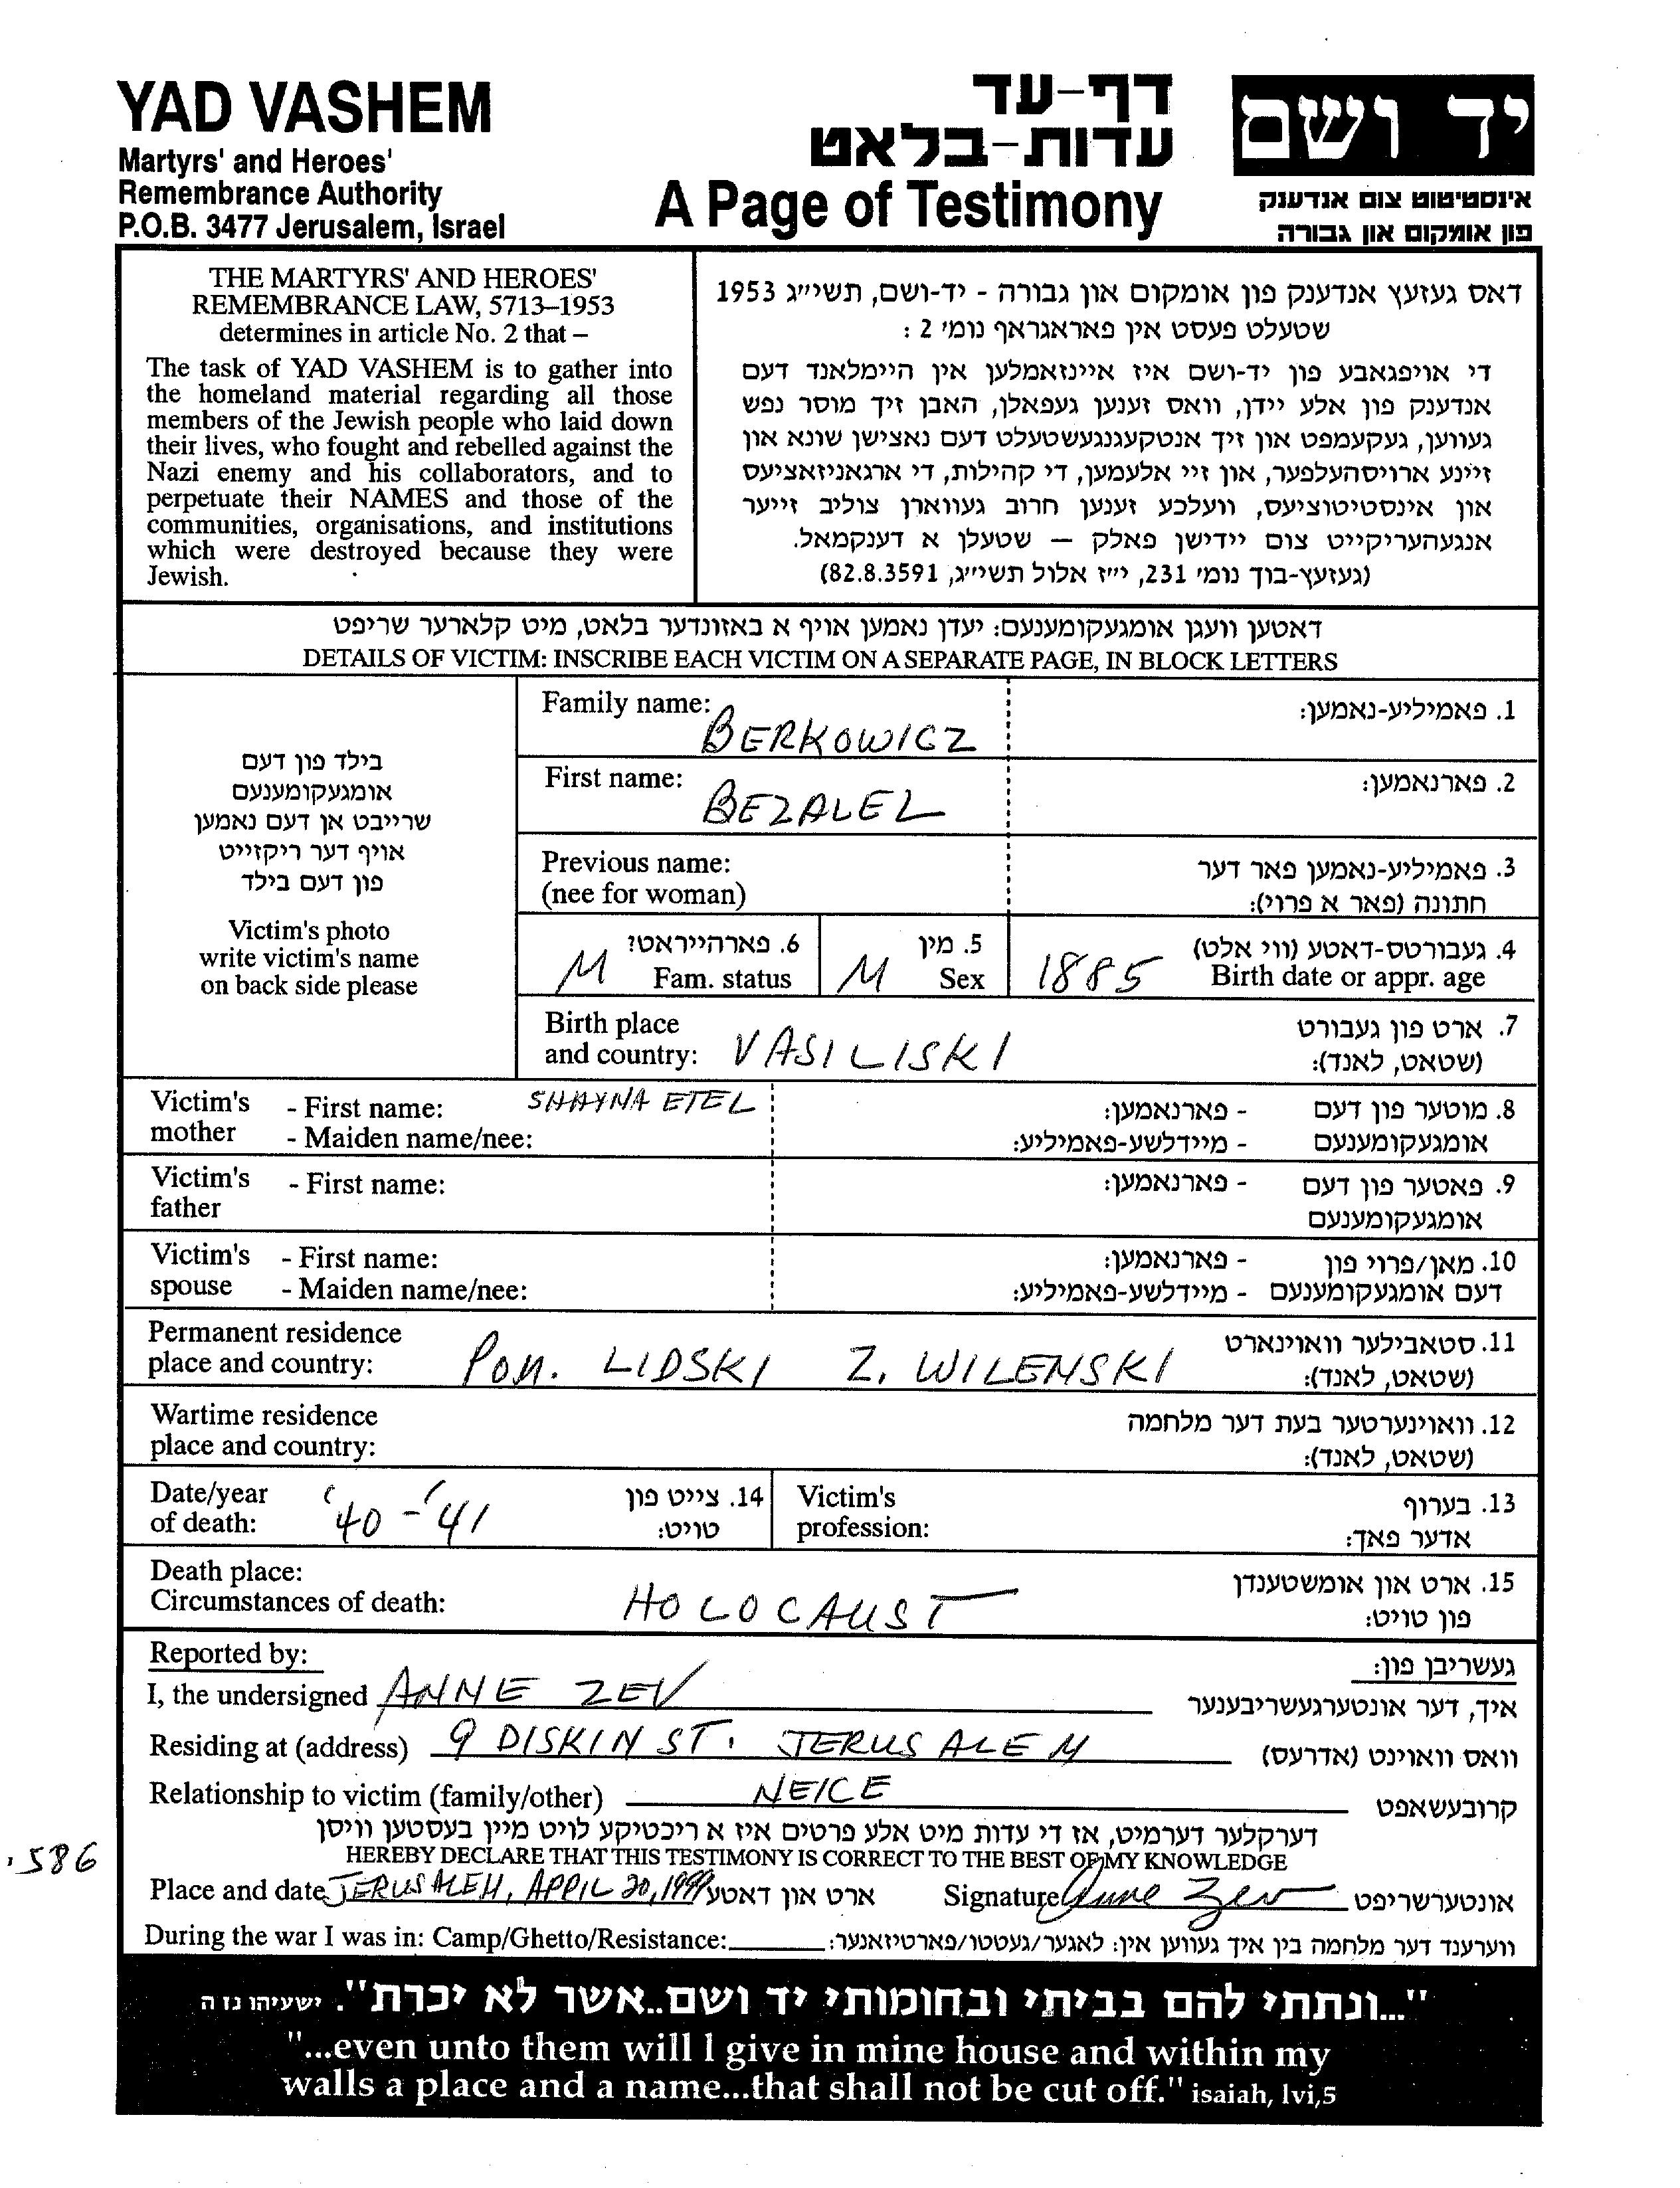 YAD VASHEM
Martyrs' and Heroes'
Remembrance Authority
P.O.B. 3477 Jerusalem, Israel
דף-עד
עדות-בלאט
A Page of Testimony
יד ושם
אינסטיטוט צום אנדענק
פון אומקום און גבורה
THE MARTYRS' AND HEROES'
REMEMBRANCE LAW, 5713–1953
determines in article No. 2 that –
The task of YAD VASHEM is to gather into
the homeland material regarding all those
members of the Jewish people who laid down
their lives, who fought and rebelled against the
Nazi enemy and his collaborators, and to
perpetuate their NAMES and those of the
communities, organisations, and institutions
which were destroyed because they were
Jewish.
דאס געזעץ אנדענק פון אומקום און גבורה - יד-ושם, תשי״ג 1953
שטעלט פעסט אין פאראגראף נומ׳ 2 :
די אויפגאבע פון יד-ושם איז איינזאמלען אין היימלאנד דעם
אנדענק פון אלע יידן, וואס זענען געפאלן, האבן זיך מוסר נפש
געווען, געקעמפט און זיך אנטקעגנגעשטעלט דעם נאצישן שונא און
זיינע ארויסהעלפער, און זיי אלעמען, די קהילות, די ארגאניזאציעס
און אינסטיטוציעס, וועלכע זענען חרוב געווארן צוליב זייער
אנגעהעריקייט צום יידישן פאלק — שטעלן א דענקמאל.
(געזעץ-בוך נומ׳ 231, י״ז אלול תשי״ג, 82.8.3591)
דאטען וועגן אומגעקומענעם: יעדן נאמען אויף א באזונדער בלאט, מיט קלארער שריפט
DETAILS OF VICTIM: INSCRIBE EACH VICTIM ON A SEPARATE PAGE, IN BLOCK LETTERS
בילד פון דעם
אומגעקומענעם
שרייבט אן דעם נאמען
אויף דער ריקזייט
פון דעם בילד
Victim's photo
write victim's name
on back side please
Family name: BERKOWICZ 1. פאמיליע-נאמען:
First name: BEZALEL 2. פארנאמען:
Previous name: 3. פאמיליע-נאמען פאר דער
(nee for woman) חתונה (פאר א פרוי):
M 6. פארהייראט? M 5. מין 1885 4. געבורטס-דאטע (ווי אלט)
Fam. status Sex Birth date or appr. age
Birth place 7. ארט פון געבורט
and country: VASILISKI (שטאט, לאנד):
Victim's - First name: SHAYNA ETEL - פארנאמען: 8. מוטער פון דעם
mother - Maiden name/nee: - מיידלשע-פאמיליע: אומגעקומענעם
Victim's - First name: - פארנאמען: 9. פאטער פון דעם
father אומגעקומענעם
Victim's - First name: - פארנאמען: 10. מאן/פרוי פון
spouse - Maiden name/nee: - מיידלשע-פאמיליע: דעם אומגעקומענעם
Permanent residence 11. סטאבילער וואוינארט
place and country: POW. LIDSKI Z. WILENSKI (שטאט, לאנד):
Wartime residence 12. וואוינערטער בעת דער מלחמה
place and country: (שטאט, לאנד):
Date/year '40 - '41 14. צייט פון Victim's 13. בערוף
of death: טויט: profession: אדער פאך:
Death place: 15. ארט און אומשטענדן
Circumstances of death: HOLOCAUST פון טויט:
Reported by: געשריבן פון:
I, the undersigned ANNE ZEV איך, דער אונטערגעשריבענער
Residing at (address) 9 DISKIN ST. JERUSALEM וואס וואוינט (אדרעס)
Relationship to victim (family/other) NEICE קרובעשאפט
דערקלער דערמיט, אז די עדות מיט אלע פרטים איז א ריכטיקע לויט מיין בעסטען וויסן
, 586
HEREBY DECLARE THAT THIS TESTIMONY IS CORRECT TO THE BEST OF MY KNOWLEDGE
Place and date JERUSALEM, APRIL 20, 1999 ארט און דאטע Signature Anne Zev אונטערשריפט
During the war I was in: Camp/Ghetto/Resistance: ווערענד דער מלחמה בין איך געווען אין: לאגער/געטטו/פארטיזאנער:
"...ונתתי להם בביתי ובחומותי יד ושם..אשר לא יכרת". ישעיהו נו ה
"...even unto them will I give in mine house and within my
walls a place and a name...that shall not be cut off." isaiah, lvi,5